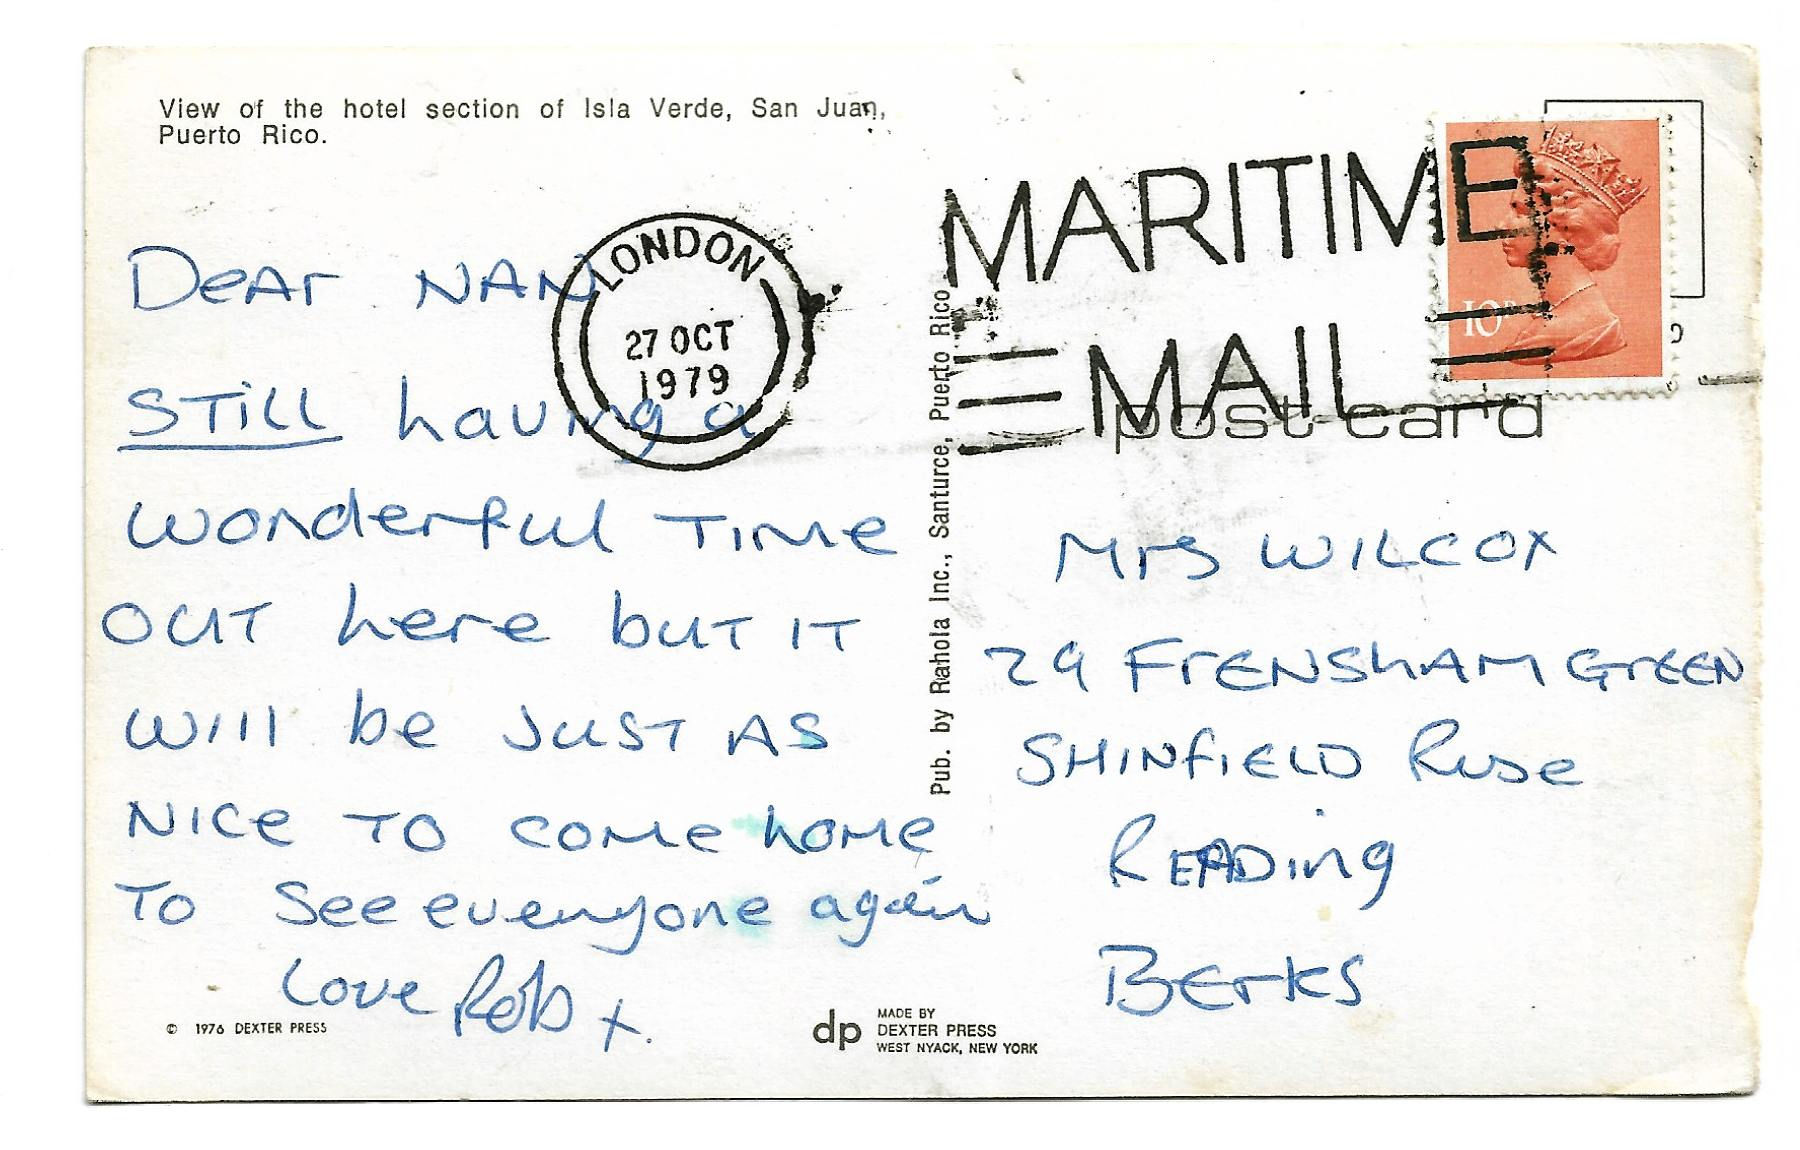 View of the hotel section of Isla Verde, San Juan,
Puerto Rico.
Dear NAN
STill having a
wonderful Time
OUT here but IT
will be JUST AS
NICe TO come home
To See everyone again
Love Rob x.
© 1976 DEXTER PRESS
LONDON
27 OCT
1979
Pub. by Rahola Inc., Santurce, Puerto Rico
dp
MADE BY
DEXTER PRESS
WEST NYACK, NEW YORK
MARITIME
MAIL
10P
post card
Mrs WILCOX
29 FrENShAM GrEEN
SHINfIELD Rise
REAding
BErKS